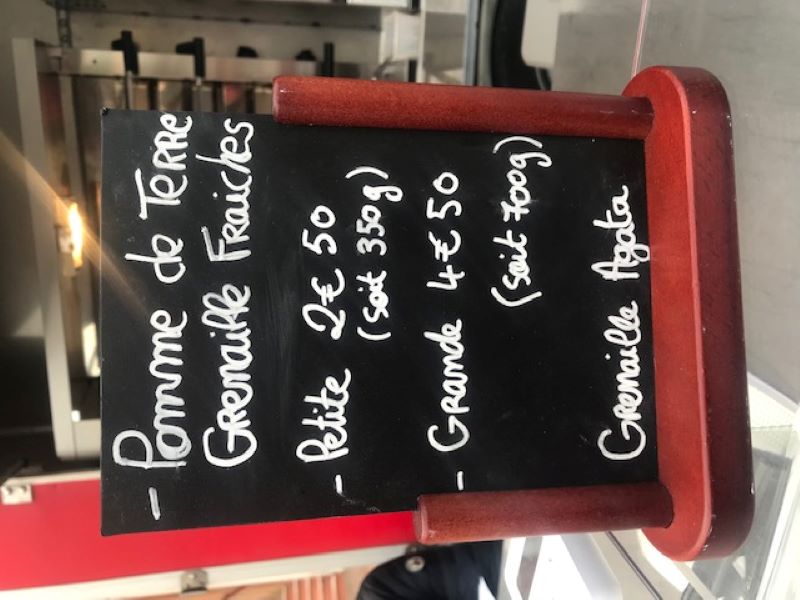 - Pomme de Terre
Grenaille Fraiches
- Petite 2€50
(soit 350g)
- Grande 4€50
(soit 700g)
Grenaille Agata